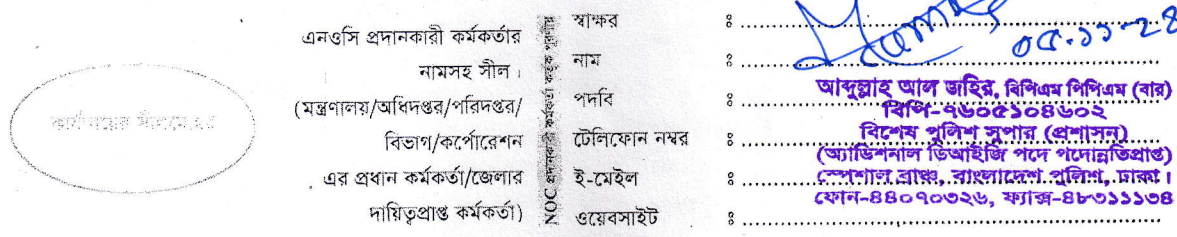 কার্যালয়ের সীলমোহর
এনওসি প্রদানকারী কর্মকর্তার
নামসহ সীল।
(মন্ত্রণালয়/অধিদপ্তর/পরিদপ্তর/
বিভাগ/কর্পোরেশন
এর প্রধান কর্মকর্তা/জেলার
দায়িত্বপ্রাপ্ত কর্মকর্তা)
NOC প্রদানকারী কর্মকর্তা কর্তৃক পূরণীয়
স্বাক্ষর ঃ
০৫-১১-২৪
নাম ঃ
পদবি ঃ
টেলিফোন নম্বর ঃ
ই-মেইল ঃ
ওয়েবসাইট ঃ
আব্দুল্লাহ আল জহির, বিপিএম পিপিএম (বার)
বিপি-৭৬০৫১০৪৬০২
বিশেষ পুলিশ সুপার (প্রশাসন)
(অ্যাডিশনাল ডিআইজি পদে পদোন্নতিপ্রাপ্ত)
স্পেশাল ব্রাঞ্চ, বাংলাদেশ পুলিশ, ঢাকা।
ফোন-৪৪০৭০৩২৬, ফ্যাক্স-৪৮৩১১১৩৪